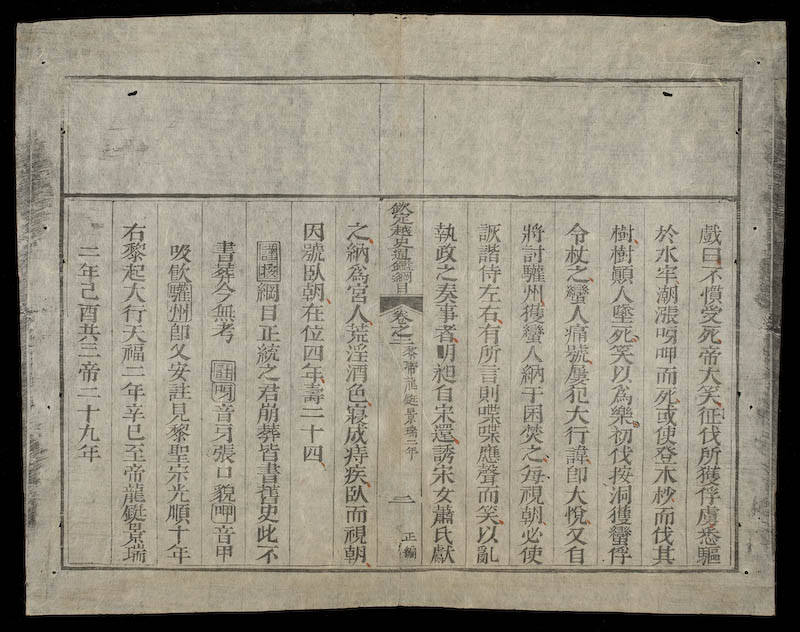 戲曰不慣受死帝大笑征伐所獲俘虜悉驅
於水牢潮漲呀呷而死或使登木杪而伐其
樹樹顚人墜死笑以爲樂初伐按洞獲蠻俘
令杖之蠻人痛號屢犯大行諱卽大悅又自
將討驩州獲蠻人納于囷焚之每視朝必使
詼諧侍左右有所言則喋喋應聲而笑以亂
執政之奏事者明昶自宋還誘宋女蕭氏獻
欽定越史通鑑綱目
卷之二
黎帝龍鋌景瑞二年
二
正編
之納爲宮人荒淫酒色寢成痔疾臥而視朝
因號臥朝在位四年壽二十四
謹按綱目正統之君崩葬皆書舊史此不
書葬今無考 註呀音牙張口貌呷音甲
吸飲驩州卽乂安註見黎聖宗光順十年
右黎起大行天福二年辛巳至帝龍鋌景瑞
二年己酉共三帝二十九年